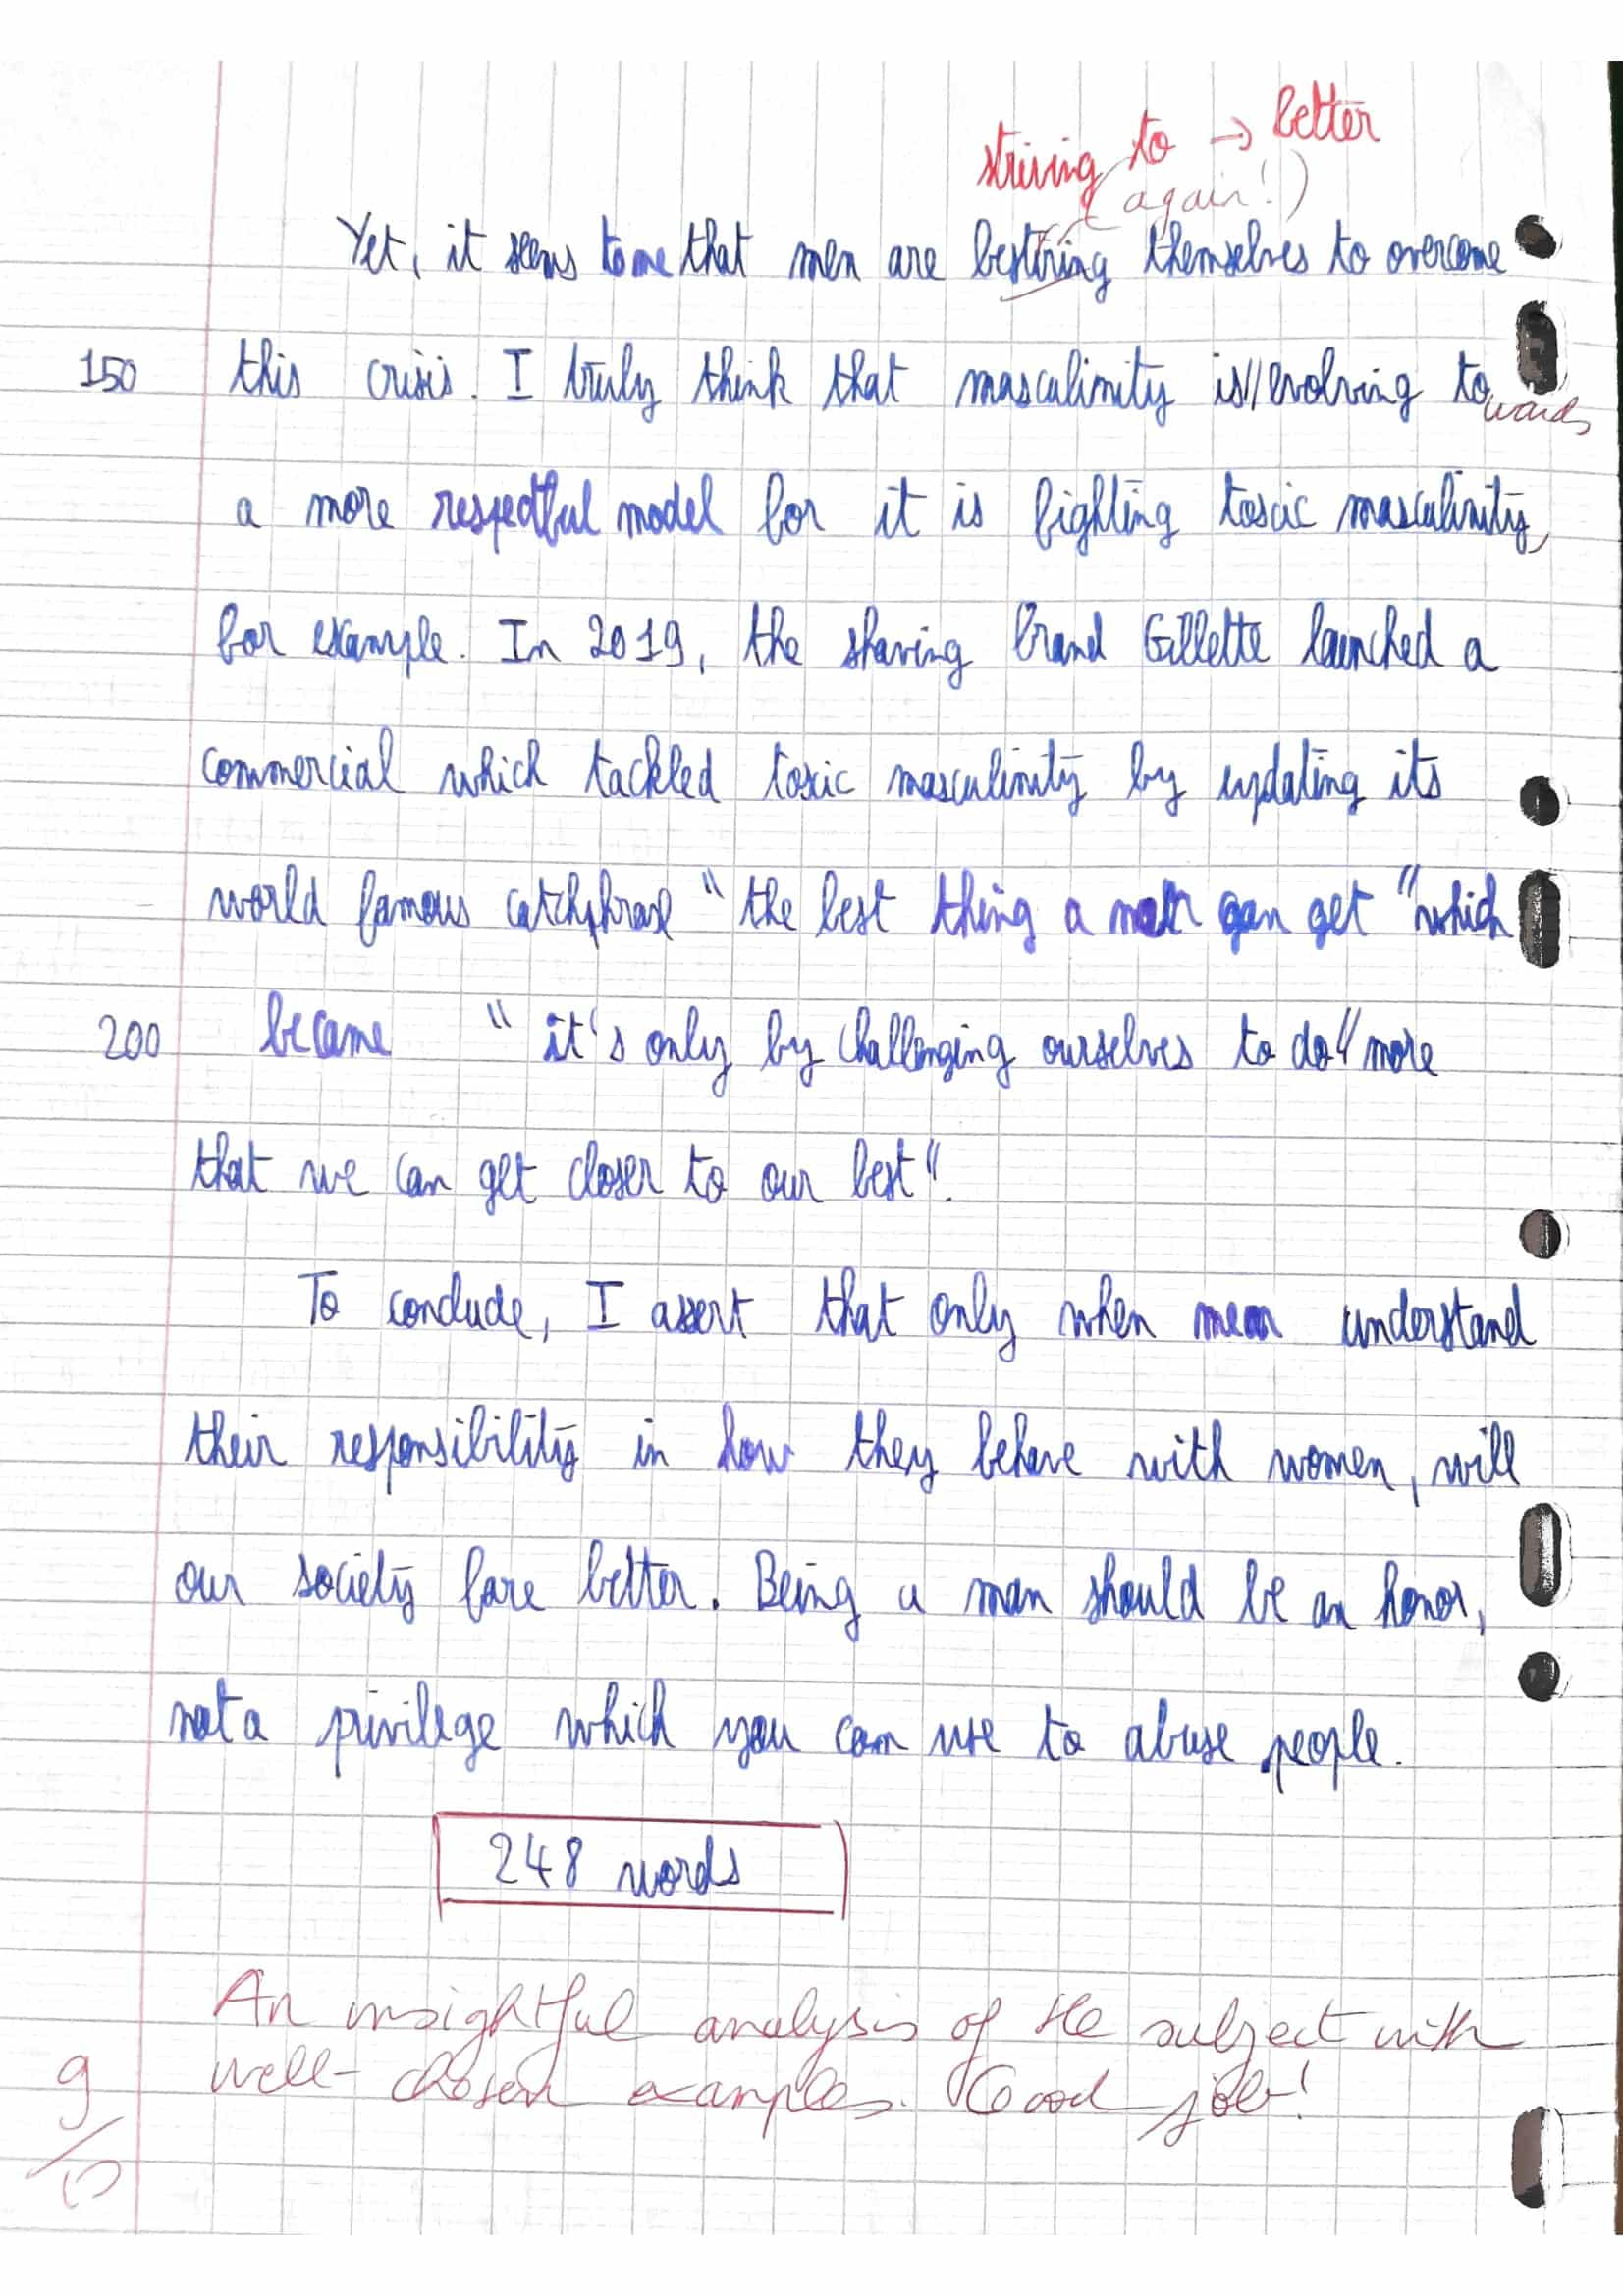 striving to → better
(again!)
Yet, it seems to me that men are bestiring themselves to overcome
150 this crisis. I truly think that masculinity is // evolving towards
a more respectful model for it is fighting toxic masculinity,
for example. In 2019, the shaving brand Gillette launched a
commercial which tackled toxic masculinity by updating its
world famous catchphrase "the best thing a man can get" which
200 became "it's only by challenging ourselves to do // more
that we can get closer to our best".
To conclude, I assert that only when men understand
their responsibility in how they behave with women, will
our society fare better. Being a man should be an honor,
not a privilege which you can use to abuse people.
248 words
An insightful analysis of the subject with
well-chosen examples. Good job!
9/10